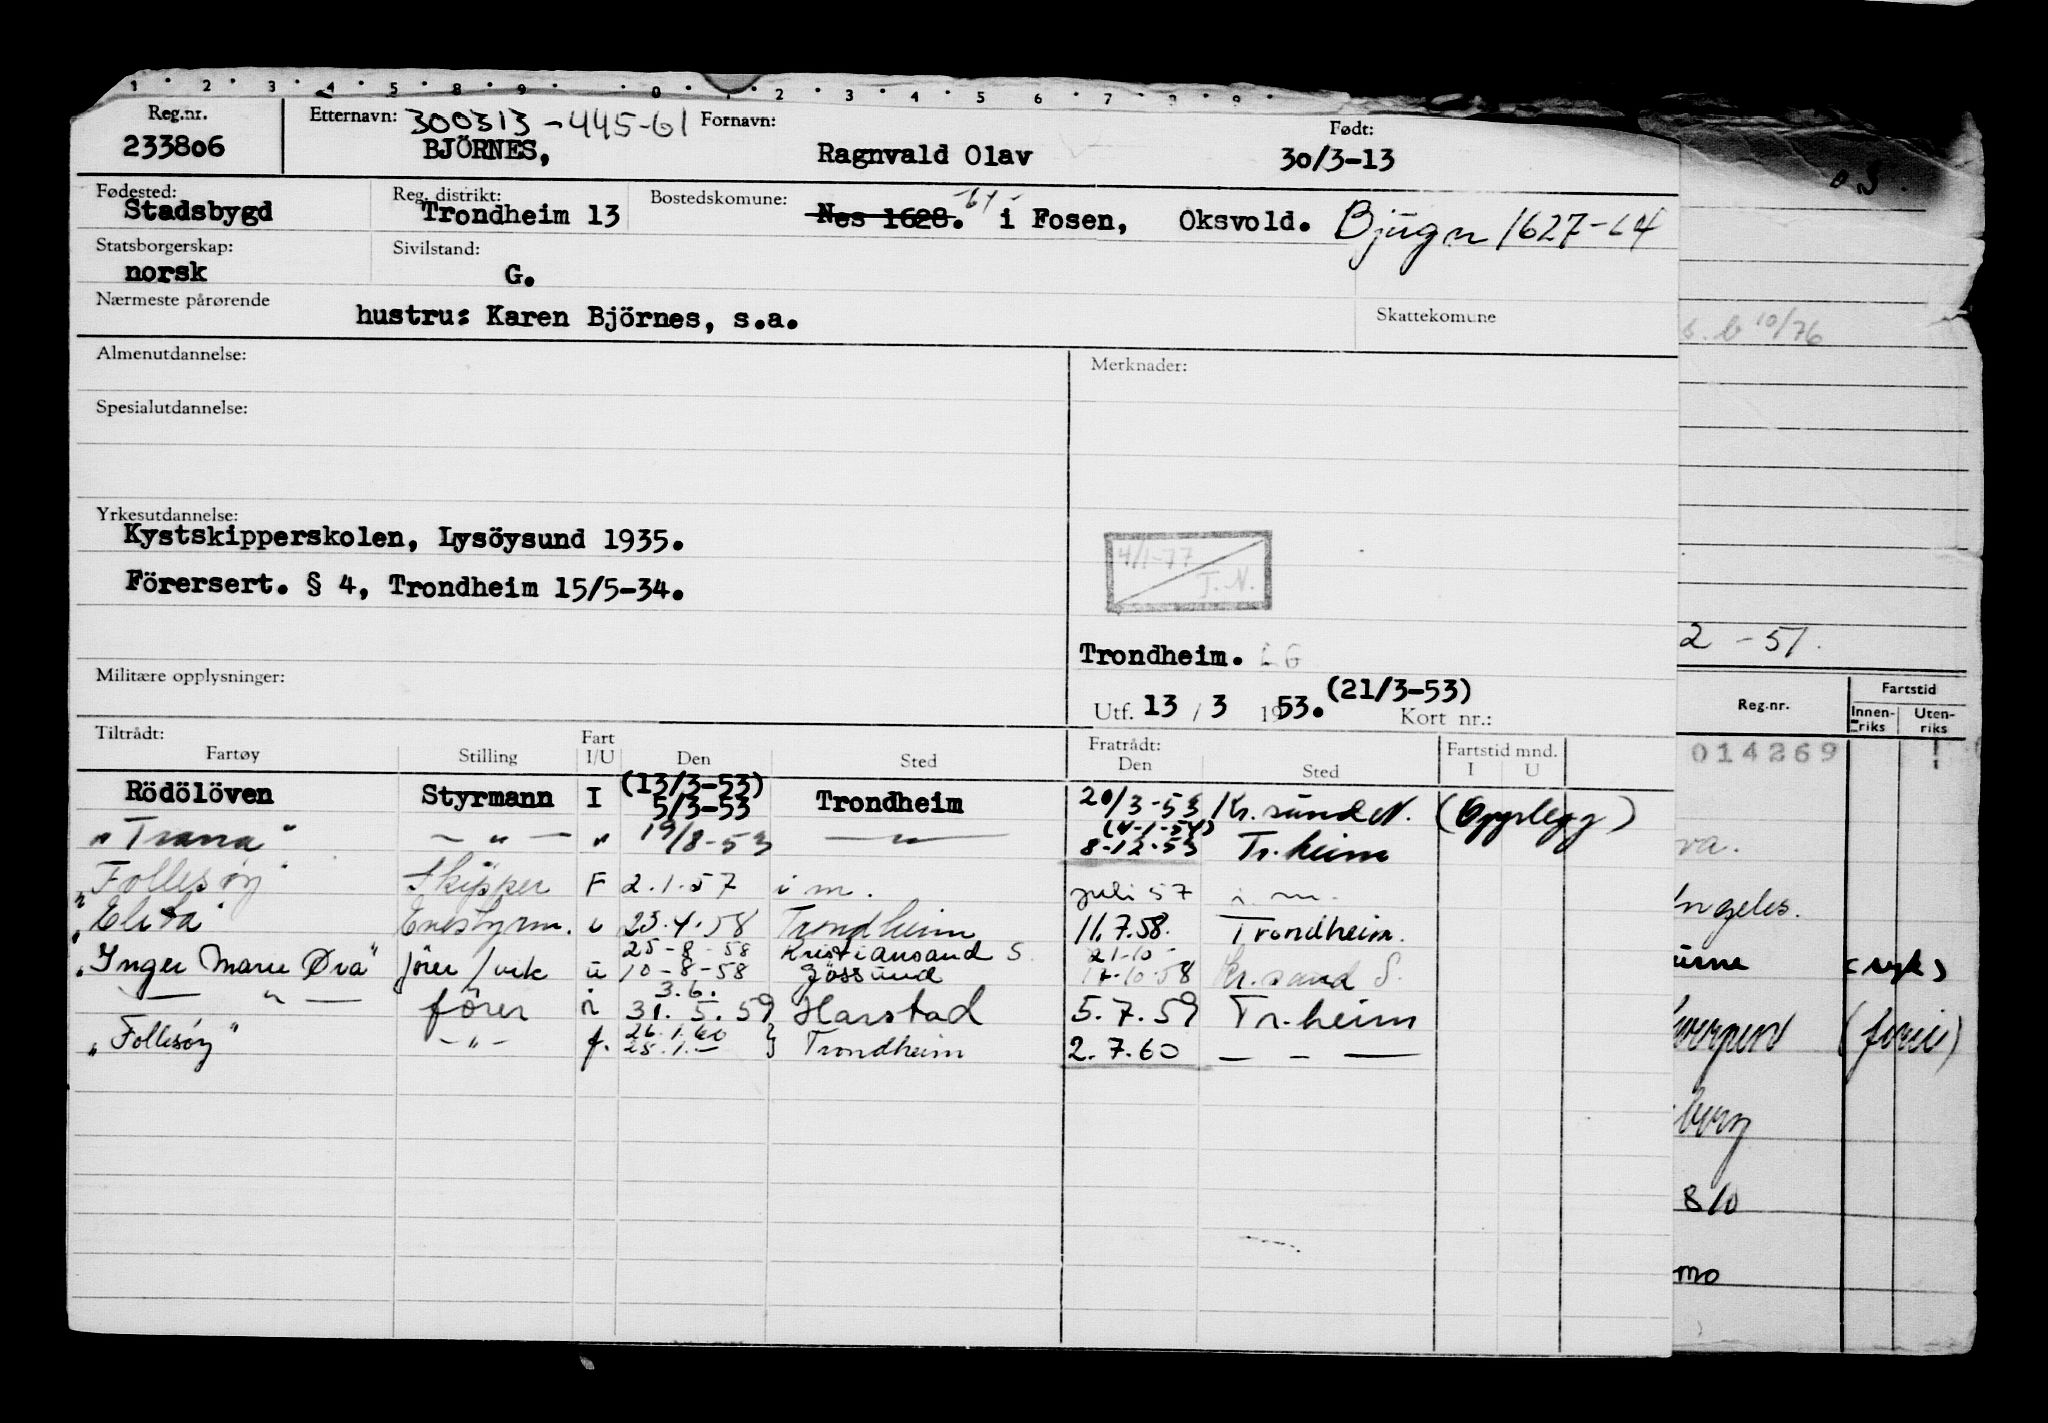 1 2 3 4 5 8 9 0 1 2 3 4 5 6 7 8 9
Reg.nr. 233806
Etternavn: 300313-445-61 BJÖRNES,
Fornavn: Ragnvald Olav
Født: 30/3-13
Fødested: Stadsbygd
Reg. distrikt: Trondheim 13
Bostedskomune: Nes 1628. i Fosen, Oksvold. Bjugn 1627-64
Statsborgerskap: norsk
Sivilstand: G.
Nærmeste pårørende hustru: Karen Björnes, s.a.
Skattekomune
Almenutdannelse:
Merknader:
Spesialutdannelse:
Yrkesutdannelse:
Kystskipperskolen, Lysöysund 1935.
Förersert. § 4, Trondheim 15/5-34.
4/1-77
T.N.
Trondheim. LG
Militære opplysninger:
Utf. 13 / 3 1953. (21/3-53) Kort nr.:
Tiltrådt: Fratrådt: Fartstid mnd.
Fartøy Stilling Fart I/U Den Sted Den Sted I U
Rödölöven Styrmann I (13/3-53) 5/3-53 Trondheim 20/3-53 Kr.sund N. (Opplegg)
"Trana" - " - " 19/8-53 - " - (4-1-54) 8-12-53 Tr.heim
"Follesøy" Skipper F 2.1.57 i m. juli 57 i. m.
"Elita" Enestyrm. u 23.4.58 Trondheim 11.7.58. Trondheim.
"Inger Marie Øva" fører/vik u 25-8-58 10-8-58 Kristiansand S. Jössund 21-10- 17-10-58 Kr.sand S.
- " - fører i 3.6. 31.5.59 Harstad 5.7.59 Tr.heim
"Follesøy" - " - f. 26.1.60 25.1.- } Trondheim 2.7.60 - - -
10/76
2 - 51.
Reg.nr. Fartstid
Innen-riks Uten-riks
014269
8/0